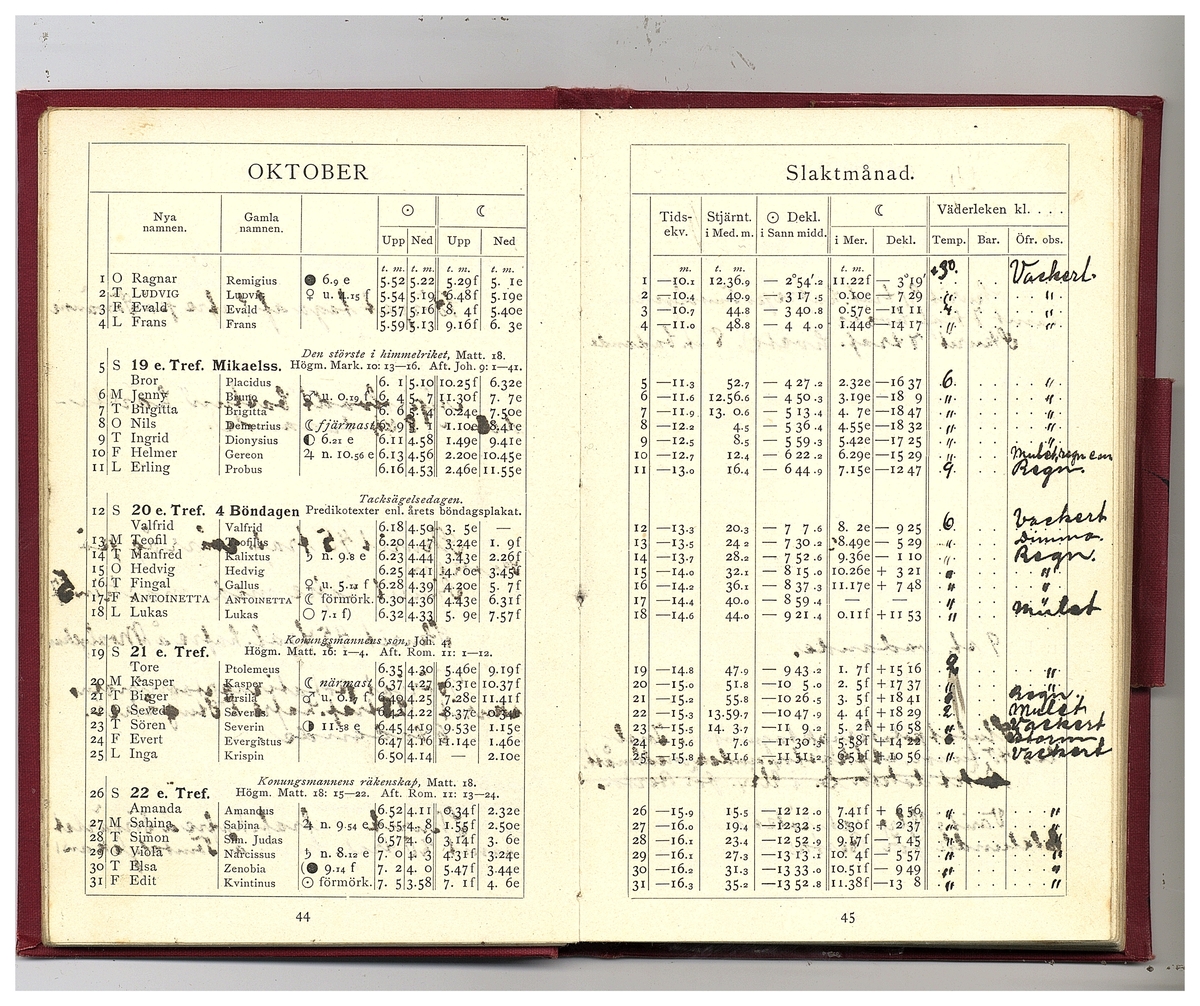 OKTOBER
Nya namnen. Gamla namnen. ☉ ☾
Upp Ned Upp Ned
t. m. t. m. t. m. t. m.
1 O Ragnar Remigius ● 6.9 e 5.52 5.22 5.29f 5. 1e
2 T LUDVIG Ludvig ♀ u. 4.15 f 5.54 5.19 6.48f 5.19e
3 F Evald Evald 5.57 5.16 8. 4f 5.40e
4 L Frans Frans 5.59 5.13 9.16f 6. 3e
Den störste i himmelriket, Matt. 18.
5 S 19 e. Tref. Mikaelss. Högm. Mark. 10: 13—16. Aft. Joh. 9: 1—41.
Bror Placidus 6. 1 5.10 10.25f 6.32e
6 M Jenny Bruno ♂ u. 0.19 f 6. 4 5. 7 11.30f 7. 7e
7 T Birgitta Brigitta 6. 6 0.24e 7.50e
8 O Nils Demetrius ☾ fjärmast 6. 9 1.10e 8.41e
9 T Ingrid Dionysius ◐ 6.21 e 6.11 4.58 1.49e 9.41e
10 F Helmer Gereon ♃ n. 10.56 e 6.13 4.56 2.20e 10.45e
11 L Erling Probus 6.16 4.53 2.46e 11.55e
Tacksägelsedagen.
12 S 20 e. Tref. 4 Böndagen Predikotexter enl. årets böndagsplakat.
Valfrid Valfrid 6.18 4.50 3. 5e —
13 M Teofil Teofilus 6.20 4.47 3.24e 1. 9f
14 T Manfred Kalixtus ♄ n. 9.8 e 6.23 4.44 3.43e 2.26f
15 O Hedvig Hedvig 6.25 4.41 4. 0e 3.45f
16 T Fingal Gallus ♀ u. 5.12 f 6.28 4.39 4.20e 5. 7f
17 F ANTOINETTA ANTOINETTA ☾ förmörk. 6.30 4.36 4.43e 6.31f
18 L Lukas Lukas ○ 7.1 f) 6.32 4.33 5. 9e 7.57f
Konungsmannens son, Joh. 4.
19 S 21 e. Tref. Högm. Matt. 16: 1—4. Aft. Rom. 11: 1—12.
Tore Ptolemeus 6.35 4.30 5.46e 9.19f
20 M Kasper Kasper ☾ närmast 6.37 4.27 6.31e 10.37f
21 T Birger Ursila ♂ u. 0.17 f 6.40 4.25 7.28e 11.41f
22 O Seved Severus 6.42 4.22 8.37e
23 T Sören Severin ◑ 11.58 e 6.45 4.19 9.53e 1.15e
24 F Evert Evergistus 6.47 4.16 11.14e 1.46e
25 L Inga Krispin 6.50 4.14 — 2.10e
Konungsmannens räkenskap, Matt. 18.
26 S 22 e. Tref. Högm. Matt. 18: 15—22. Aft. Rom. 11: 13—24.
Amanda Amandus 6.52 4.11 0.34f 2.32e
27 M Sabina Sabina ♃ n. 9.54 e 6.55 4. 8 1.55f 2.50e
28 T Simon Sim. Judas 6.57 4. 6 3.14f 3. 6e
29 O Viola Narcissus ♄ n. 8.12 e 7. 0 4. 3 4.31f 3.24e
30 T Elsa Zenobia (● 9.14 f 7. 2 4. 0 5.47f 3.44e
31 F Edit Kvintinus ☉ förmörk. 7. 5 3.58 7. 1f 4. 6e
44
Slaktmånad.
Tidsekv. Stjärnt. i Med. m. ☉ Dekl. i Sann midd. ☾ Väderleken kl. . . .
i Mer. Dekl. Temp. Bar. Öfr. obs.
m. t. m. t. m.
1 —10.1 12.36.9 — 2°54'.2 11.22f — 3°19' +30. Vackert.
2 —10.4 40.9 — 3 17.5 0.10e — 7 29 " "
3 —10.7 44.8 — 3 40.8 0.57e —11 11 "
4 —11.0 48.8 — 4 4.0 1.44e —14 17 " "
5 —11.3 52.7 — 4 27.2 2.32e —16 37 6. "
6 —11.6 12.56.6 — 4 50.3 3.19e —18 9 " "
7 —11.9 13. 0.6 — 5 13.4 4. 7e —18 47 " "
8 —12.2 4.5 — 5 36.4 4.55e —18 32 " "
9 —12.5 8.5 — 5 59.3 5.42e —17 25 " "
10 —12.7 12.4 — 6 22.2 6.29e —15 29 " Mulet, regn
11 —13.0 16.4 — 6 44.9 7.15e —12 47 9. Regn.
12 —13.3 20.3 — 7 7.6 8. 2e — 9 25 6. Vackert
13 —13.5 24.2 — 7 30.2 8.49e — 5 29 " Dimma.
14 —13.7 28.2 — 7 52.6 9.36e — 1 10 " Regn.
15 —14.0 32.1 — 8 15.0 10.26e + 3 21 " "
16 —14.2 36.1 — 8 37.3 11.17e + 7 48 " "
17 —14.4 40.0 — 8 59.4 — — "
18 —14.6 44.0 — 9 21.4 0.11f +11 53 " Mulet
19 —14.8 47.9 — 9 43.2 1. 7f +15 16 2 "
20 —15.0 51.8 —10 5.0 2. 5f +17 37 " "
21 —15.2 55.8 —10 26.5 3. 5f +18 41 Regn.
22 —15.3 13.59.7 —10 47.9 4. 4f +18 29 2 Mulet
23 —15.5 14. 3.7 —11 9.2 5. 2f +16 58 " Vackert
24 —15.6 7.6 —11 30.3 5.58f +14 22 Storm
25 —15.8 11.6 —11 51.2 +10 56 " Vackert
26 —15.9 15.5 —12 12.0 7.41f + 6 56 " "
27 —16.0 19.4 —12 32.5 8.30f + 2 37 " "
28 —16.1 23.4 —12 52.9 9.17f — 1 45 " "
29 —16.1 27.3 —13 13.1 10. 4f — 5 57 "
30 —16.2 31.3 —13 33.0 10.51f — 9 49 " "
31 —16.3 35.2 —13 52.8 11.38f —13 8 " "
45